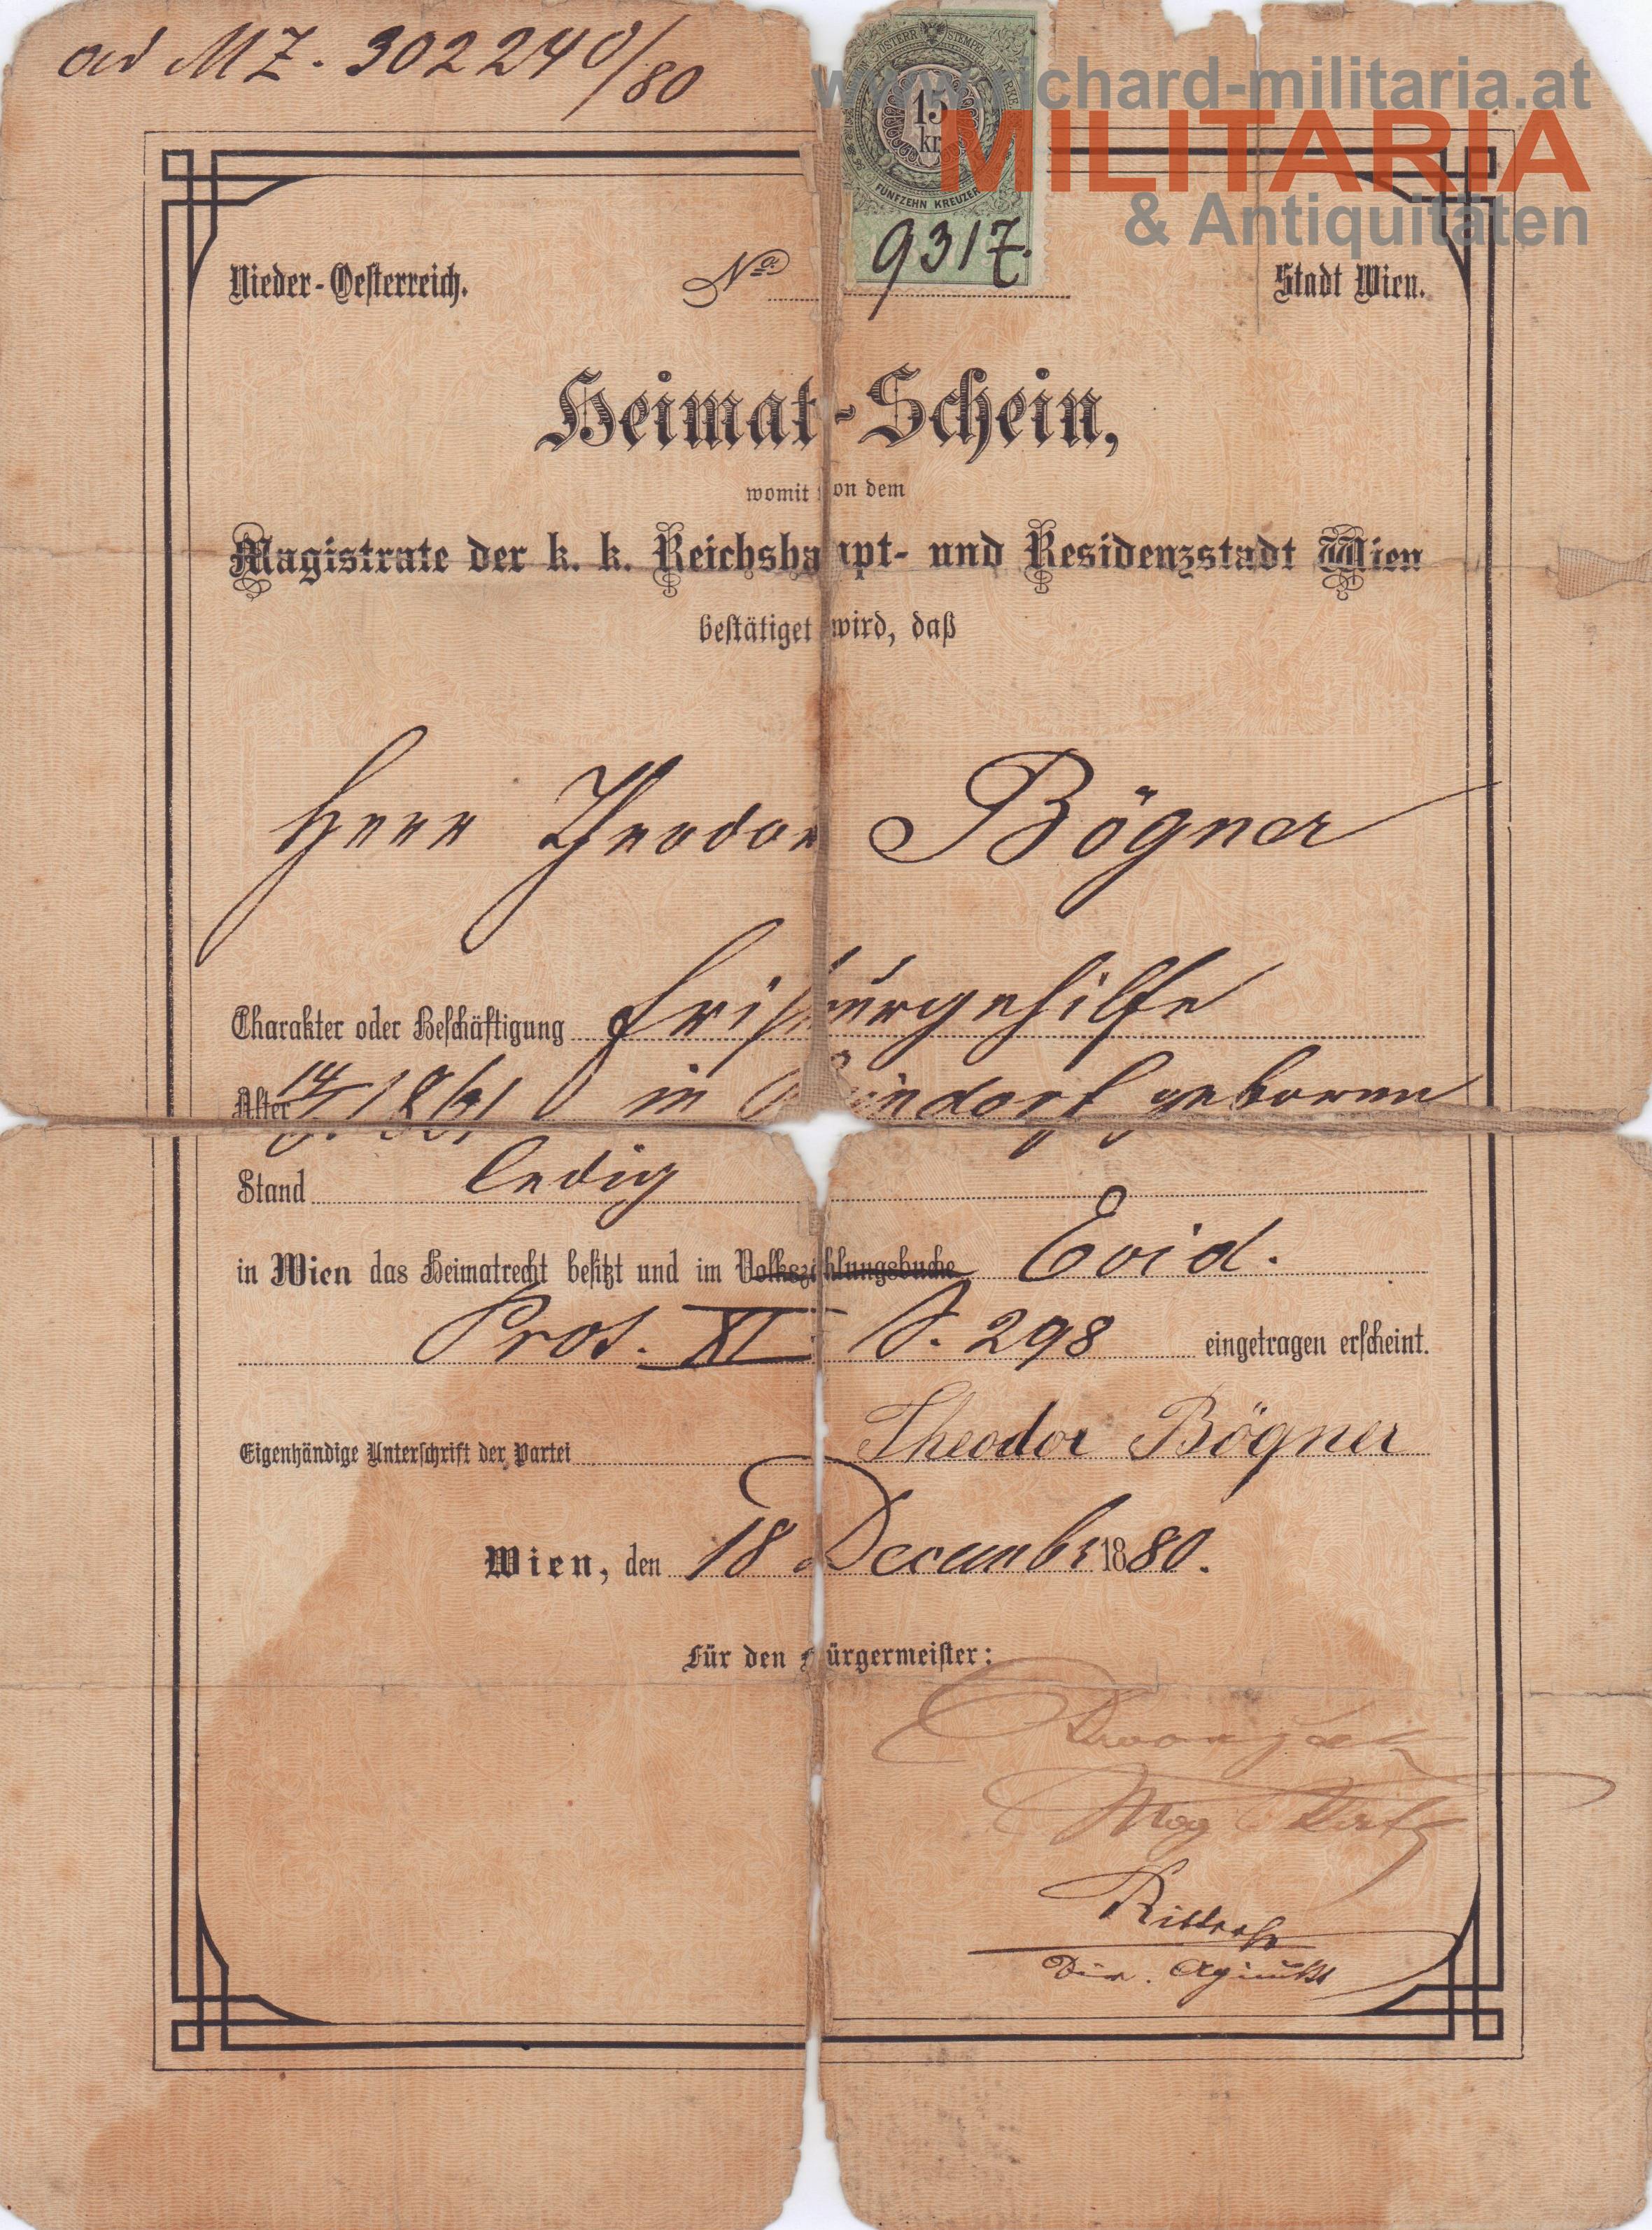 ad MZ. 302240/80
www.richard-militaria.at
MILITARIA
& Antiquitäten
ÖSTERR. STEMPEL MARKE
15
kr.
FÜNFZEHN KREUZER
Nieder-Oesterreich. No. 9317. Stadt Wien.
Heimat-Schein,
womit von dem
Magistrate der k. k. Reichshaupt- und Residenzstadt Wien
bestätiget wird, daß
Herr Theodor Bögner
Charakter oder Beschäftigung Friseurgehilfe
Alter 1861 in geboren
Stand ledig
in Wien das Heimatrecht besitzt und im Volkszählungsbuche Evid.
Prot. XI S. 298 eingetragen erscheint.
Eigenhändige Unterschrift der Partei Theodor Bögner
Wien, den 18 Decembr 1880.
Für den Bürgermeister:
Mag